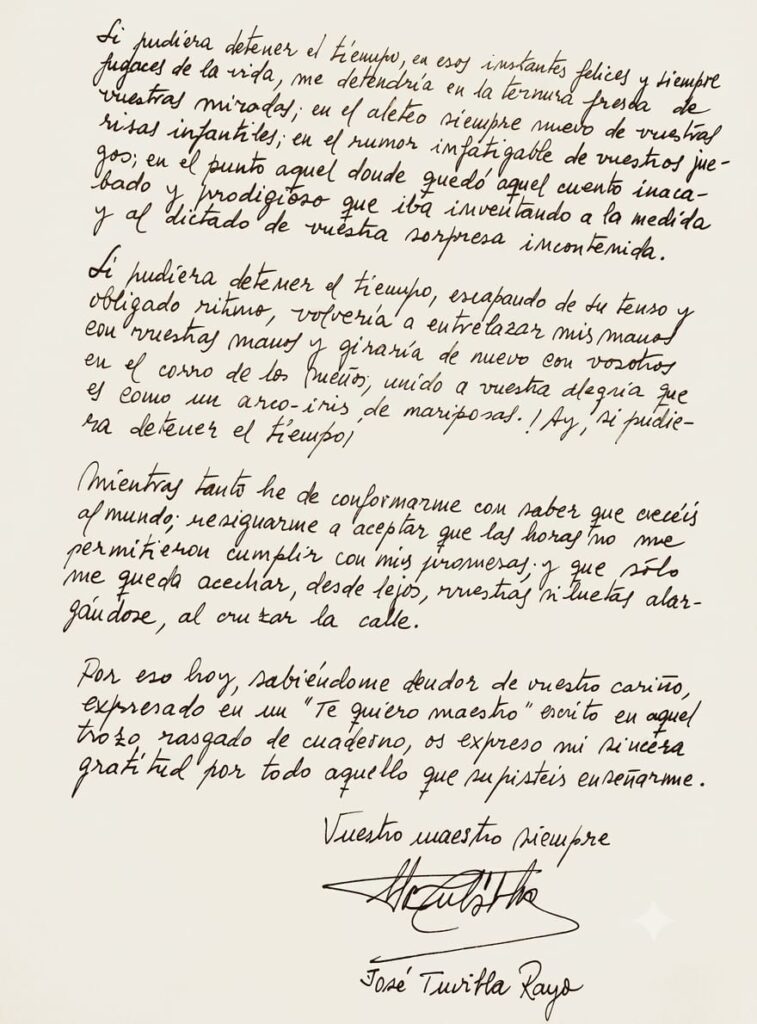 Si pudiera detener el tiempo, en esos instantes felices y siempre
fugaces de la vida, me detendría en la ternura fresca de
vuestras miradas; en el aleteo siempre nuevo de vuestras
risas infantiles; en el rumor infatigable de vuestros jue-
gos; en el punto aquel donde quedó aquel cuento inaca-
bado y prodigioso que iba inventando a la medida
y al dictado de vuestra sorpresa incontenida.
Si pudiera detener el tiempo, escapando de su tenso y
obligado ritmo, volvería a entrelazar mis manos
con vuestras manos y giraría de nuevo con vosotros
en el corro de los sueños, unido a vuestra alegría que
es como un arco-iris de mariposas. ! Ay, si pudie-
ra detener el tiempo¡
Mientras tanto he de conformarme con saber que crecéis
al mundo; resignarme a aceptar que las horas no me
permitieron cumplir con mis promesas; y que sólo
me queda acechar, desde lejos, vuestras siluetas alar-
gándose, al cruzar la calle.
Por eso hoy, sabiéndome deudor de vuestro cariño,
expresado en un "Te quiero maestro" escrito en aquel
trozo rasgado de cuaderno, os expreso mi sincera
gratitud por todo aquello que supisteis enseñarme.
Vuestro maestro siempre
José Tuvilla Rayo